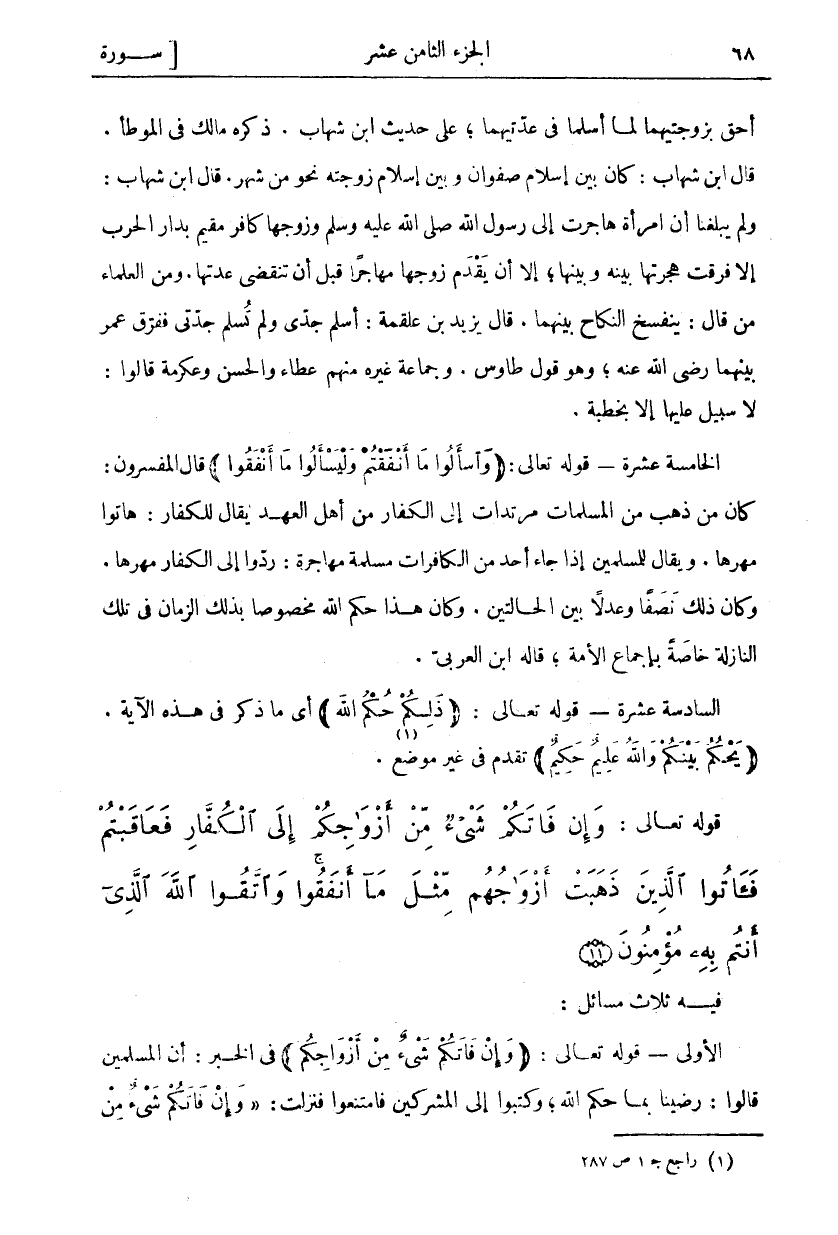 ٦٨ الجزء الثامن عشر [ ســورة
أحق بزوجتيهما لمـا أسلما فى عدّتيهما ؛ على حديث ابن شهاب . ذكره مالك فى الموطأ .
قال ابن شهاب : كان بين إسلام صفوان و بين إسلام زوجته نحو من شهر. قال ابن شهاب :
ولم يبلغنا أن امرأة هاجرت إلى رسول الله صلى الله عليه وسلم وزوجها كافر مقيم بدار الحرب
إلا فرقت هجرتها بينه و بينها؛ إلا أن يَقْدَم زوجها مهاجرًا قبل أن تنقضى عدتها. ومن العلماء
من قال : ينفسخ النكاح بينهما . قال يزيد بن علقمة : أسلم جدّى ولم تُسلم جدّتى ففرّق عمر
بينهما رضى الله عنه ؛ وهو قول طاوس . وجماعة غيره منهم عطاء والحسن وعكرمة قالوا :
لا سبيل عليها إلا بخطبة .
الخامسة عشرة — قوله تعالى: ﴿ وَٱسأَلُوا مَا أَنْفَقْتُمْ وَلْيَسْأَلُوا مَا أَنْفَقُوا ﴾ قال المفسرون :
كان من ذهب من المسلمات مرتدات إلى الكفار من أهل العهـد يقال للكفار : هاتوا
مهرها . و يقال للمسلمين إذا جاء أحد من الكافرات مسلمة مهاجرة : ردّوا إلى الكفار مهرها .
وكان ذلك نَصَفًا وعدلًا بين الحـالتين . وكان هـذا حكم الله مخصوصا بذلك الزمان فى تلك
النازلة خاصّةً بإجماع الأمة ؛ قاله ابن العربىّ .
السادسة عشرة — قوله تعـالى : ﴿ ذَلِـكُمْ حُكْمُ اللهَ ﴾ أى ما ذكر فى هـذه الآية .
﴿ يَحْكُمُ بَيْنَكُمْ وَاللهُ عَلِيمٌ حَكِيمٌ ﴾ تقدم فى غير موضع (١) .
قوله تعـالى : وَإِن فَاتَكُمْ شَىْءٌ مِّنْ أَزْوَٰجِكُمْ إِلَى ٱلْكُفَّارِ فَعَاقَبْتُمْ
فَـَٔاتُوا ٱلَّذِينَ ذَهَبَتْ أَزْوَٰجُهُم مِّثْـلَ مَآ أَنفَقُوا ۚ وَٱتَّقُـوا ٱللَّهَ ٱلَّذِىٓ
أَنتُم بِهِۦ مُؤْمِنُونَ ﴿١١﴾
فيـــه ثلاث مسائل :
الأولى — قوله تعـالى : ﴿ وَإِنْ فَاتَكُمْ شَىْءٌ مِنْ أَزْوَاجِكُمْ ﴾ فى الخـبر : أن المسلمين
قالوا : رضينا بمـا حكم الله؛ وكتبوا إلى المشركين فامتنعوا فنزلت: « وَإِنْ فَاتَكُمْ شَىْءٌ مِنْ
(١) راجع ج ١ ص ٢٨٧